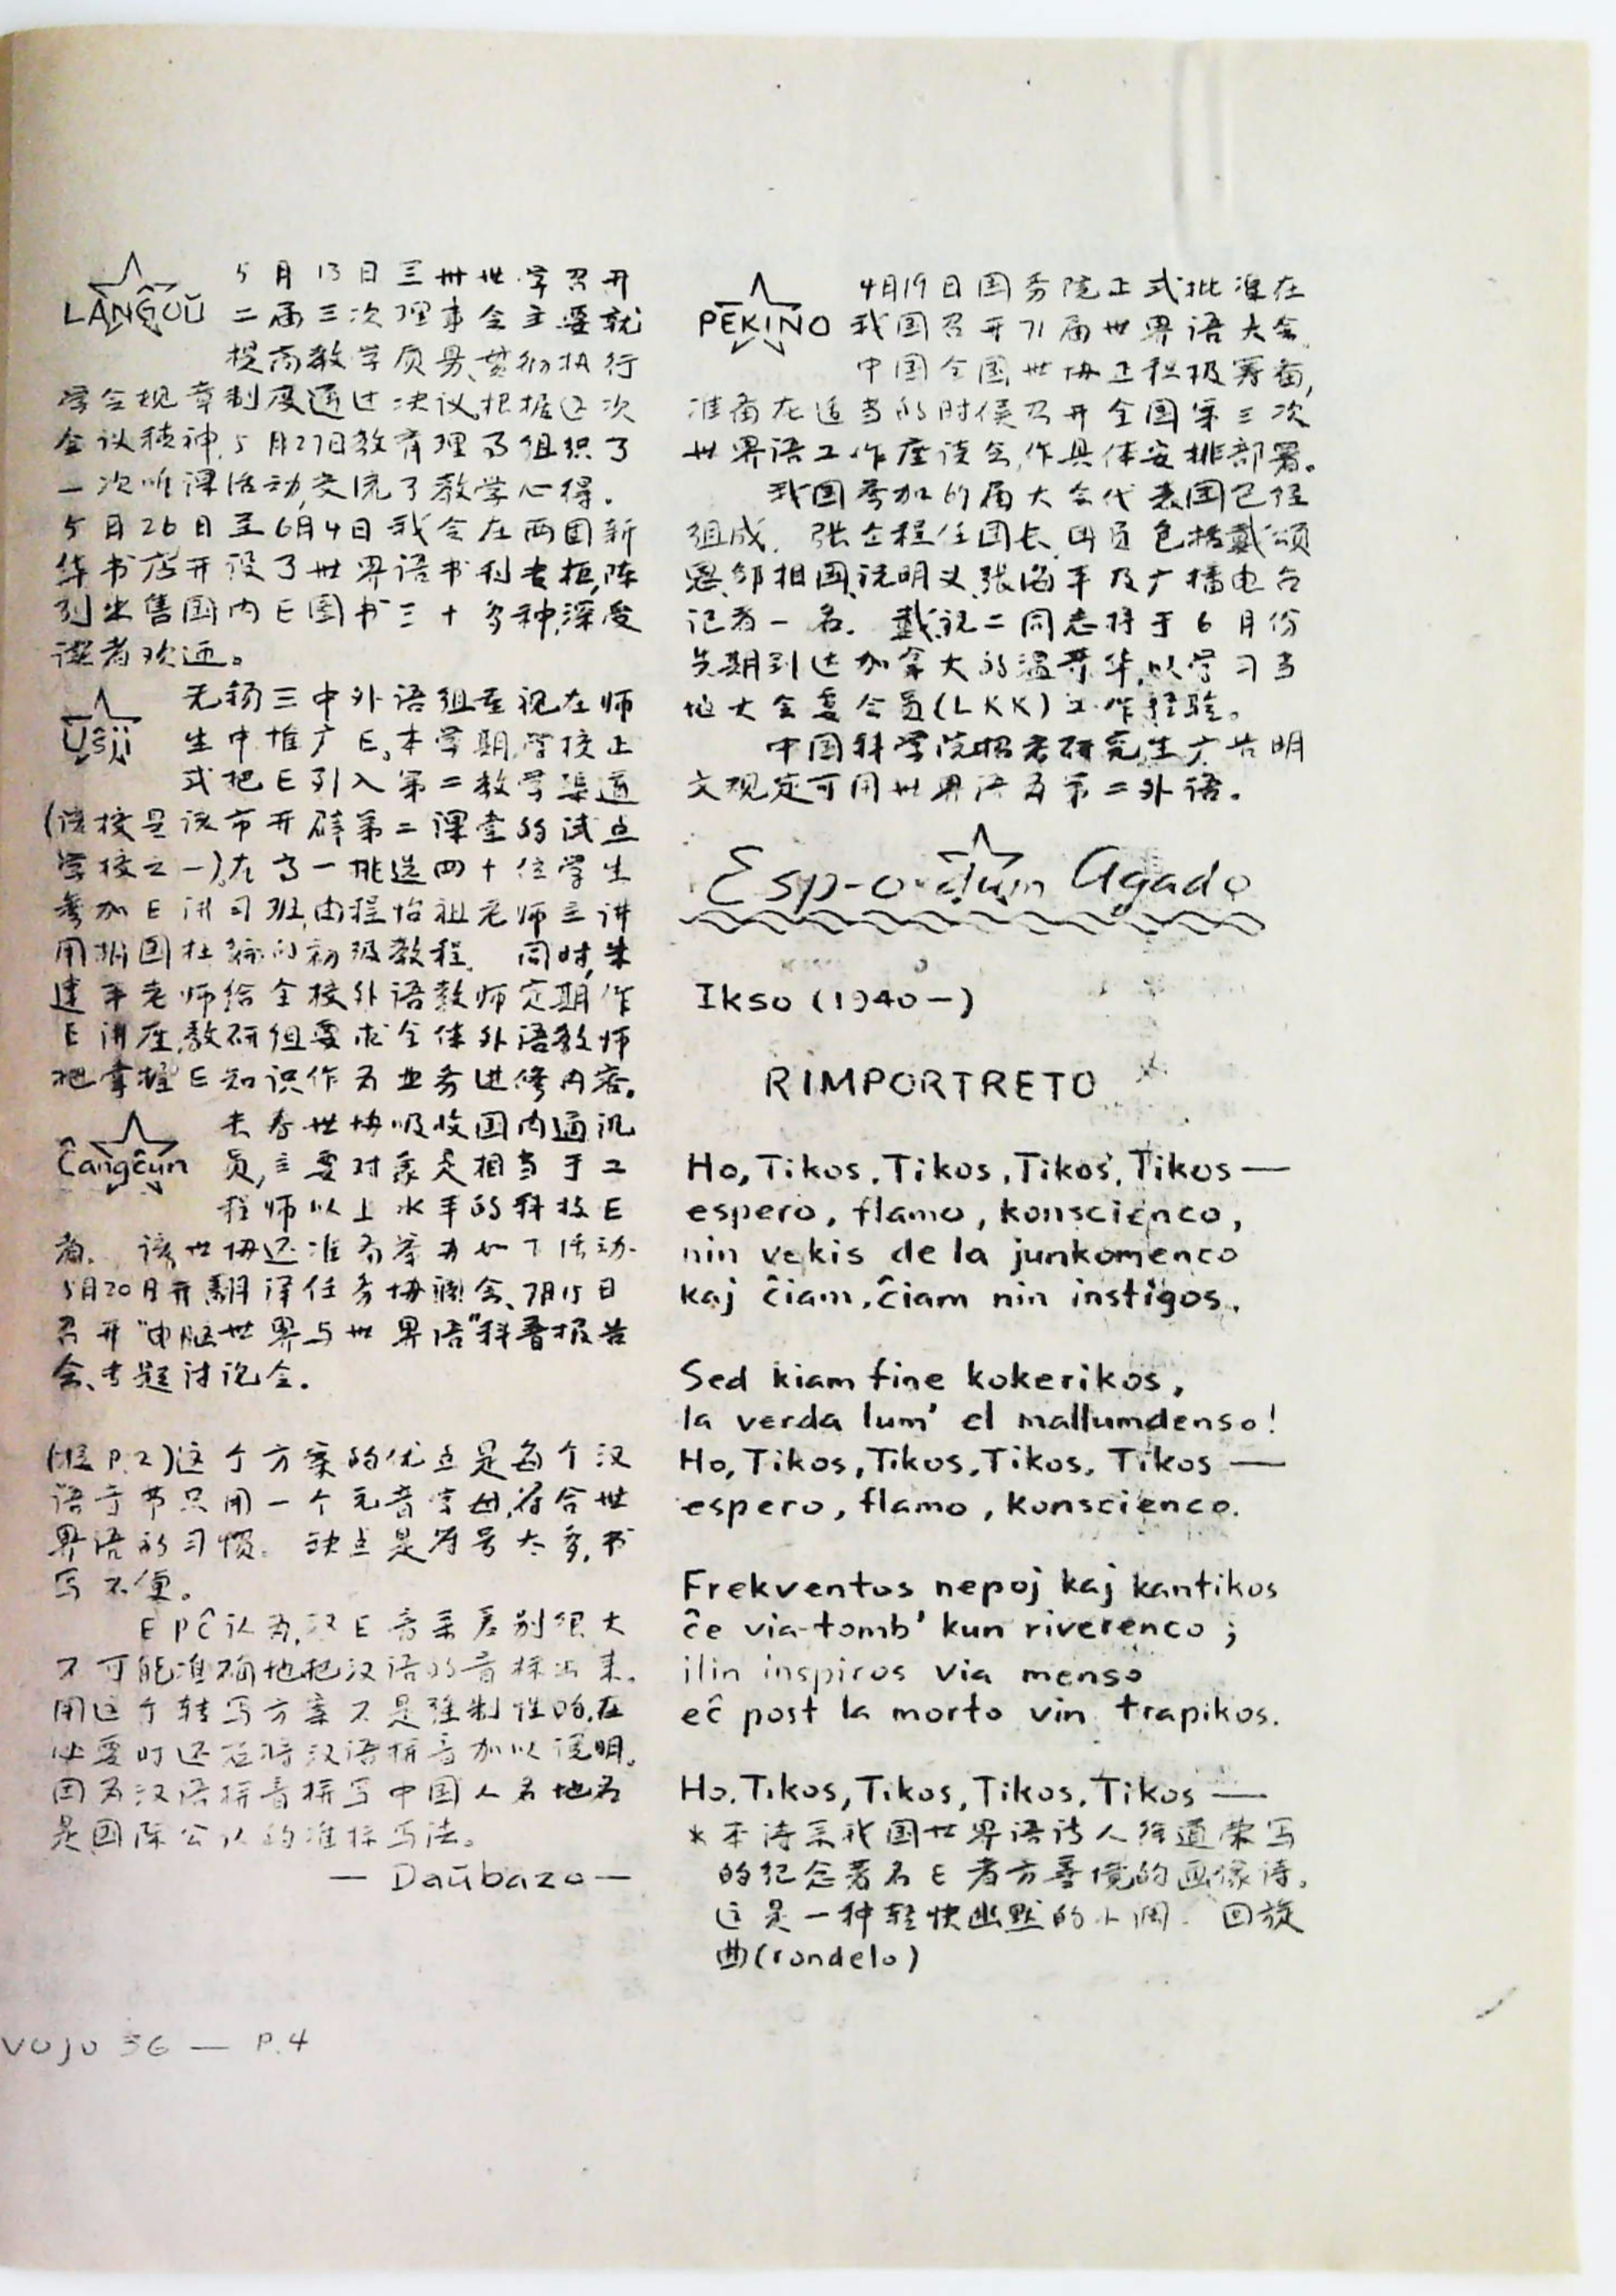 LANĜOŬ
5月13日兰州世学召开
二届三次理事会主要就
提高教学质量、贯彻执行
学会规章制度通过决议.根据这次
会议精神,5月27日教育理事组织了
一次听课活动,交流了教学心得。
5月26日至6月4日我会在两图新
华书店开设了世界语书刊专柜,陈
列出售国内E图书三十多种,深受
读者欢迎。
USJI
无锡三中外语组重视在师
生中推广E。本学期,学校正
式把E引入第二教学渠道
(该校是该市开辟第二课堂的试点
学校之一)。在高一挑选四十位学生
参加E讲习班,由程怡祖老师主讲
用 国 编的初级教程. 同时,朱
建平老师给全校外语教师定期作
E讲座,教研组要求全体外语教师
把掌握E知识作为业务进修内容。
Ĉangĉun
长春世协吸收国内通讯
员,主要对象是相当于工
程师以上水平的科技E
者. 该世协还准备举办如下活动.
5月20日开翻译任务协调会、7月15日
召开“电脑世界与世界语”科普报告
会、专题讨论会.
(接P.2)这个方案的优点是每个汉
语音节只用一个元音字母,符合世
界语的习惯. 缺点是符号太多,书
写不便。
EPĈ认为,汉E音系差别很大
不可能准确地把汉语的音标出来.
用这个转写方案不是强制性的,在
必要时还应将汉语拼音加以说明。
因为汉语拼音拼写中国人名地名
是国际公认的准标写法。
— Daŭbazo —
PEKINO
4月19日国务院正式批准在
我国召开71届世界语大会.
中国全国世协正积极筹备,
准备在适当的时候召开全国第三次
世界语工作座谈会,作具体安排部署。
我国参加69届大会代表团已经
组成. 张企程任团长,团员包括戴颂
恩、邹相国、祝明义、张治平及广播电台
记者一名. 戴、祝二同志将于6月份
先期到达加拿大的温哥华,以学习当
地大会委会员(LKK)工作经验。
中国科学院招考研究生广告明
文规定可用世界语为第二外语.
Esp-o-dum Agado
Ikso (1940—)
RIMPORTRETO
Ho, Tikos, Tikos, Tikos, Tikos —
espero, flamo, konscienco,
nin vekis de la junkomenco
kaj ĉiam, ĉiam nin instigos.
Sed kiam fine kokerikos,
la verda lum' el mallumdenso!
Ho, Tikos, Tikos, Tikos, Tikos —
espero, flamo, konscienco.
Frekventos nepoj kaj kantikos
ĉe via tomb' kun riverenco;
ilin inspiros via menso
eĉ post la morto vin trapikos.
Ho, Tikos, Tikos, Tikos, Tikos —
* 本诗系我国世界语诗人徐道荣写
的纪念著名E者方善境的画像诗.
这是一种轻快幽默的小调. 回旋
曲(rondelo)
VOJO 36 — P.4